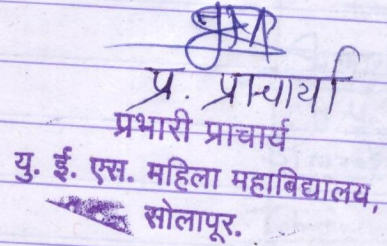 प्र. प्राचार्या
प्रभारी प्राचार्य
यु. ई. एस. महिला महाबिद्यालय,
सोलापूर.